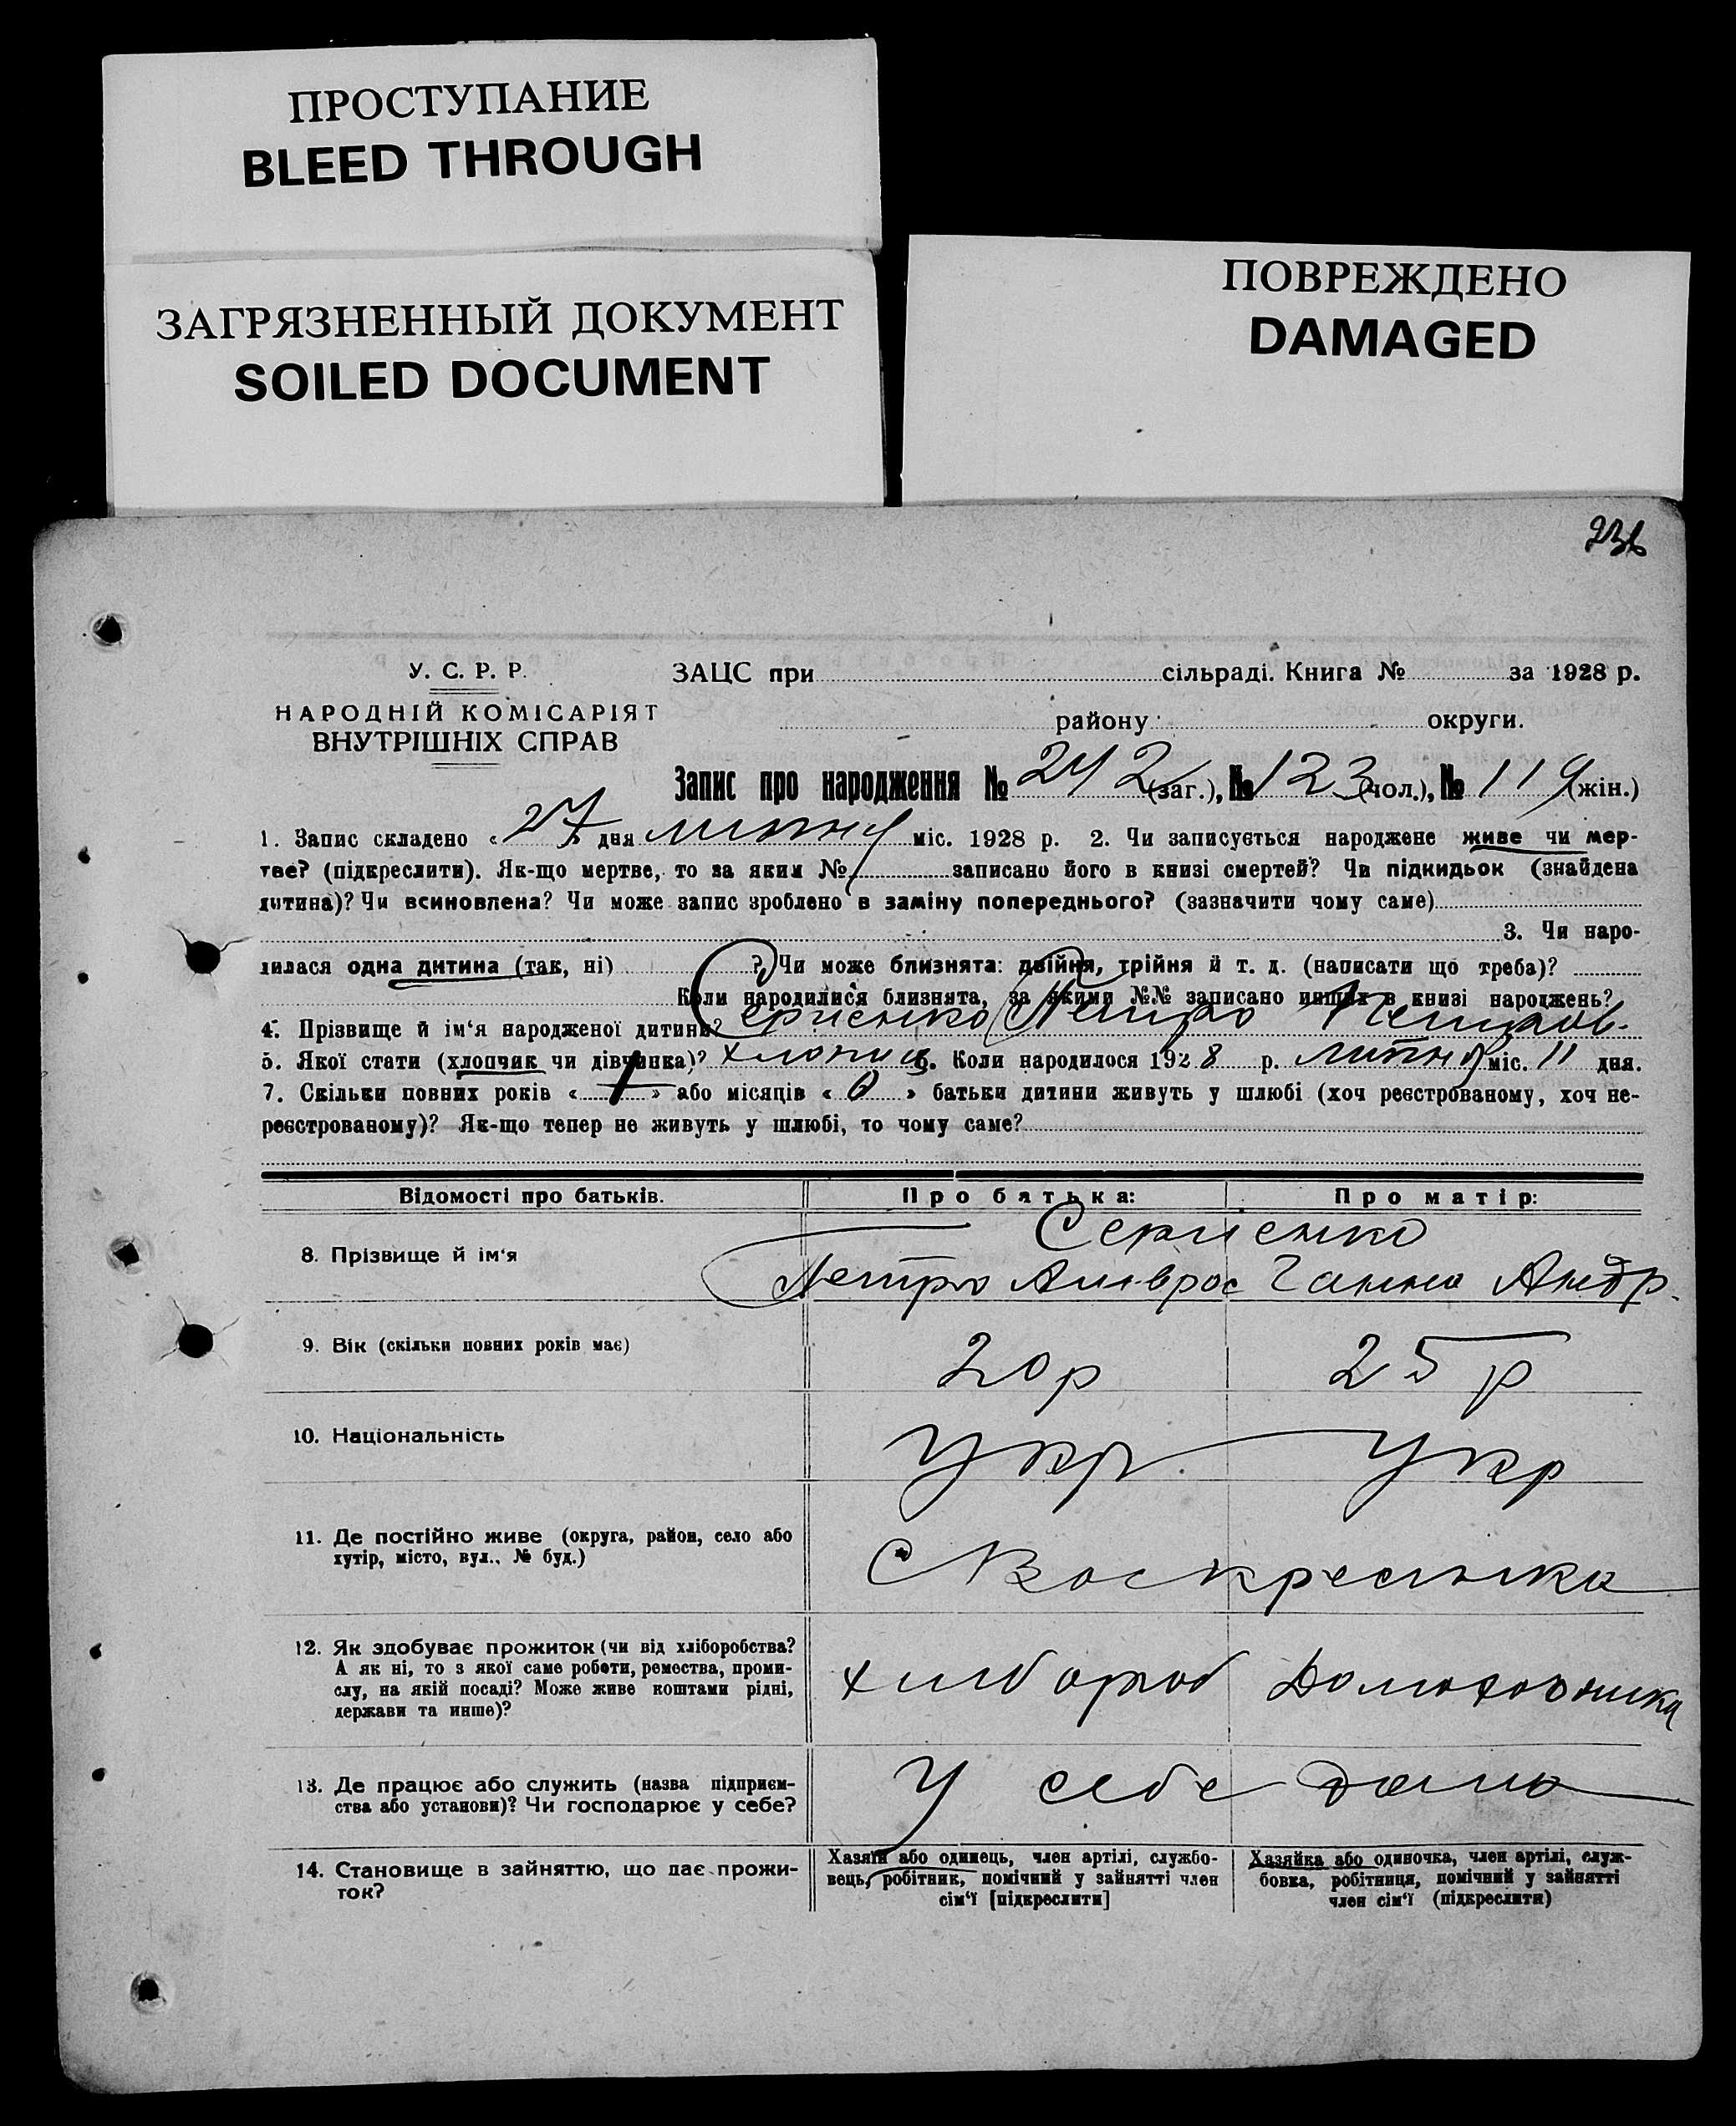 ПРОСТУПАНИЕ
BLEED THROUGH
ЗАГРЯЗНЕННЫЙ ДОКУМЕНТ
SOILED DOCUMENT
ПОВРЕЖДЕНО
DAMAGED
236
У. С. Р. Р.
НАРОДНІЙ КОМІСАРІЯТ
ВНУТРІШНІХ СПРАВ
ЗАЦС при сільраді. Книга № за 1928 р.
району округи.
Запис про народження № 242 (заг.), № 123 (чол.), № 119 (жін.)
1. Запис складено « 27 » дня липня міс. 1928 р. 2. Чи записується народжене живе чи мер-
тве? (підкреслити). Як-що мертве, то за яким № записано його в книзі смертей? Чи підкидьок (знайдена
дитина)? Чи всиновлена? Чи може запис зроблено в заміну попереднього? (зазначити чому саме)
3. Чи наро-
дилася одна дитина (так, ні) ? Чи може близнята: двійня, трійня й т. д. (написати що треба)?
Коли народилися близнята, за якими №№ записано инших в книзі народжень?
4. Прізвище й ім‘я народженої дитини? Сергієнко Петро Петров.
5. Якої статі (хлопчик чи дівчинка)? хлопчик 6. Коли народилося 1928 р. липня міс. 11 дня.
7. Скільки повних років « 1 » або місяців « 0 » батьки дитини живуть у шлюбі (хоч реєстрованому, хоч не-
реєстрованому)? Як-що тепер не живуть у шлюбі, то чому саме?
Відомості про батьків. Про батька: Про матір:
Сергієнко
8. Прізвище й ім‘я Петро Амврос Ганна Андр.
9. Вік (скільки повних років має) 20 р 25 р
10. Національність Укр. Укр
11. Де постійно живе (округа, район, село або
хутір, місто, вул., № буд.) С Воскресенка
12. Як здобуває прожиток (чи від хліборобства?
А як ні, то з якої саме роботи, ремества, проми-
слу, на якій посаді? Може живе коштами рідні,
держави та инше)? хлібороб Домогосника
13. Де працює або служить (назва підприєм-
ства або установи)? Чи господарює у себе? У себе дома
14. Становище в зайняттю, що дає прожи-
ток?
Хазяїн або одинець, член артілі, службо-
вець, робітник, помічний у зайнятті член
сім‘ї [підкреслити]
Хазяйка або одиночка, член артілі, служ-
бовка, робітниця, помічний у зайнятті
член сім‘ї (підкреслити)